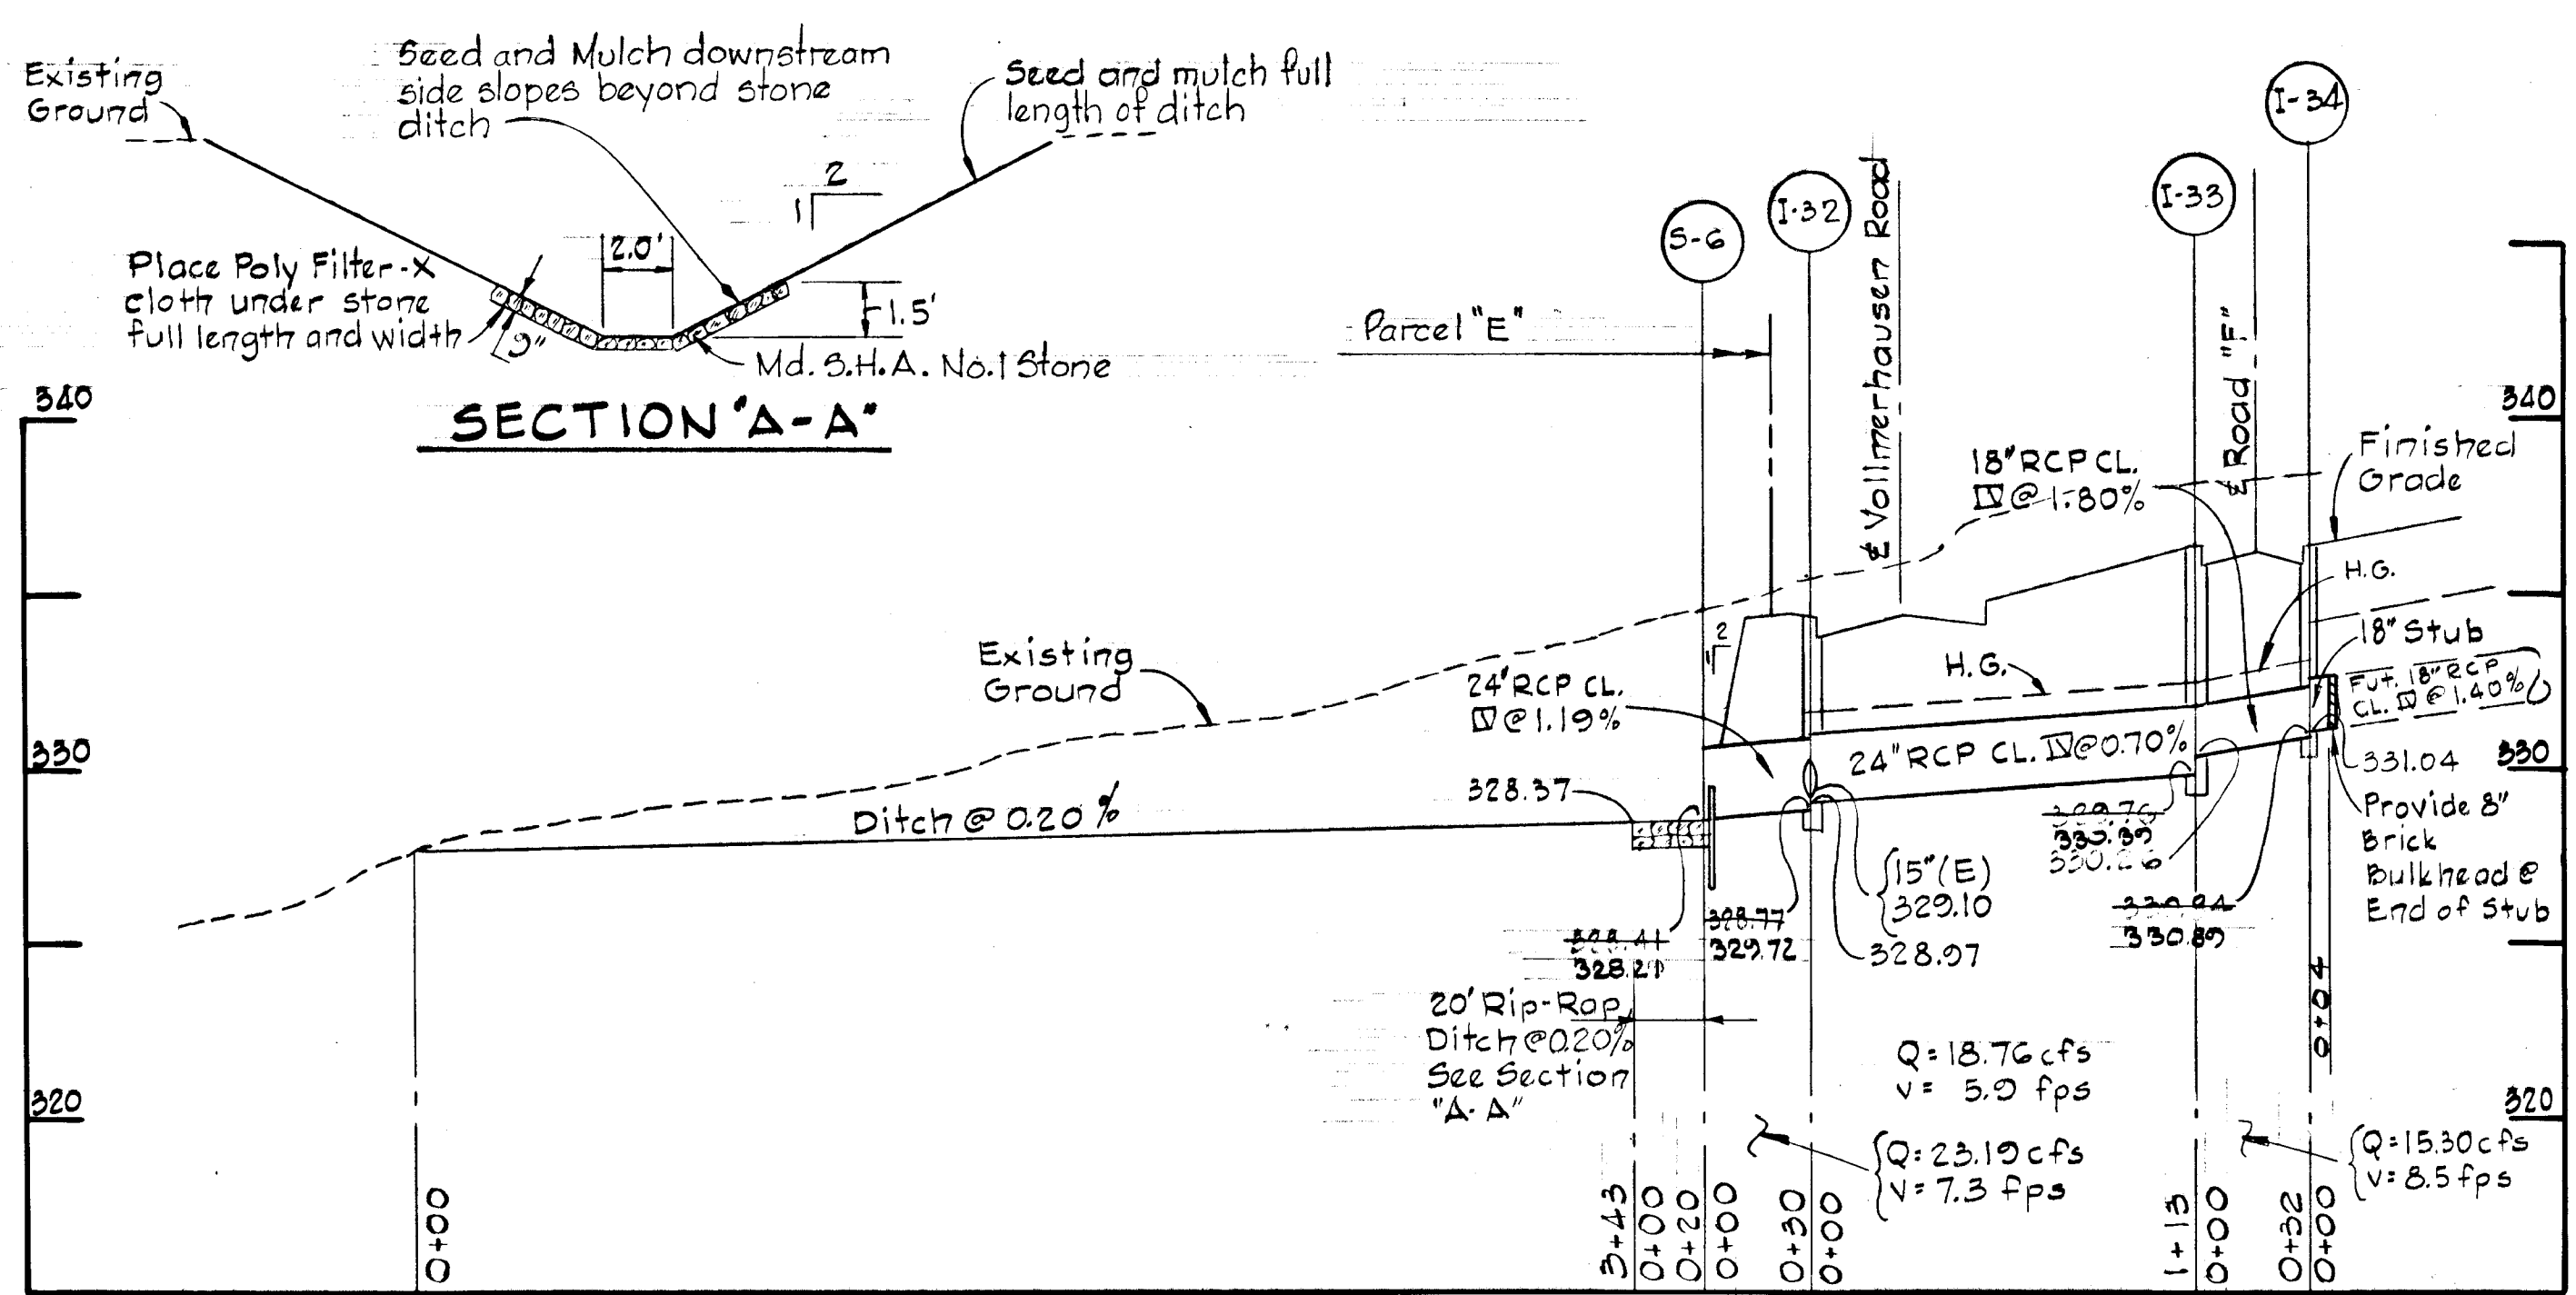 Existing
Ground
Seed and Mulch downstream
side slopes beyond stone
ditch
Seed and mulch full
length of ditch
2
1
2.0'
1.5'
Place Poly Filter-X
cloth under stone
full length and width
9"
Md. S.H.A. No.1 Stone
SECTION "A-A"
S-6
I-32
I-33
I-34
Parcel "E"
℄ Vollmerhausen Road
℄ Road "F"
340
340
18" RCP CL.
IV @ 1.80%
Finished
Grade
H.G.
18" Stub
Fut. 18" RCP
CL. IV @ 1.40%
Existing
Ground
2
1
H.G.
24" RCP CL.
IV @ 1.19%
24" RCP CL. IV @ 0.70%
330
330
331.04
328.37
Ditch @ 0.20%
Provide 8"
Brick
Bulkhead @
End of Stub
329.76
330.39
330.26
15" (E)
329.10
328.97
328.41
328.21
328.77
329.72
330.84
330.89
0+04
20' Rip-Rap
Ditch @ 0.20%
See Section
"A-A"
Q = 18.76 cfs
V = 5.9 fps
320
320
Q = 23.19 cfs
V = 7.3 fps
Q = 15.30 cfs
V = 8.5 fps
0+00
3+43
0+00
0+20
0+00
0+30
0+00
1+13
0+00
0+32
0+00